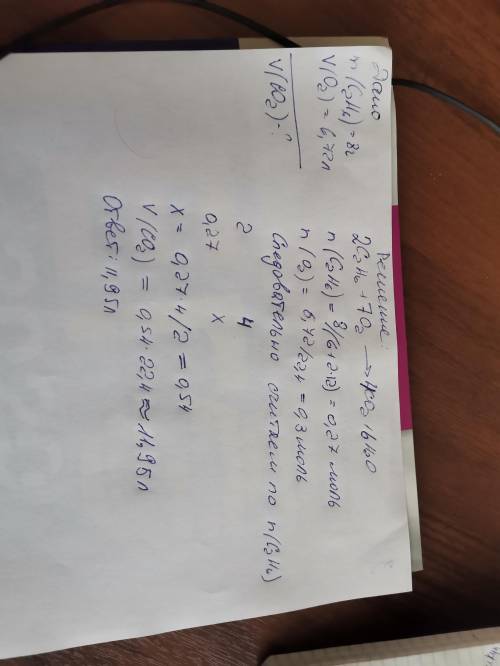 Дано
m(C₂H₆) = 8г
V(O₂) = 6,72л
V(CO₂)-?
Решение:
2C₂H₆ + 7O₂ → 4CO₂ + 6H₂O
n(C₂H₆) = 8/(6+2·12) = 0,27 моль
n(O₂) = 6,72/22,4 = 0,3 моль
Следовательно считаем по n(C₂H₆)
2 4
0,27 x
x = 0,27·4/2 = 0,54
V(CO₂) = 0,54·22,4 ≈ 11,95л
Ответ: 11,95л